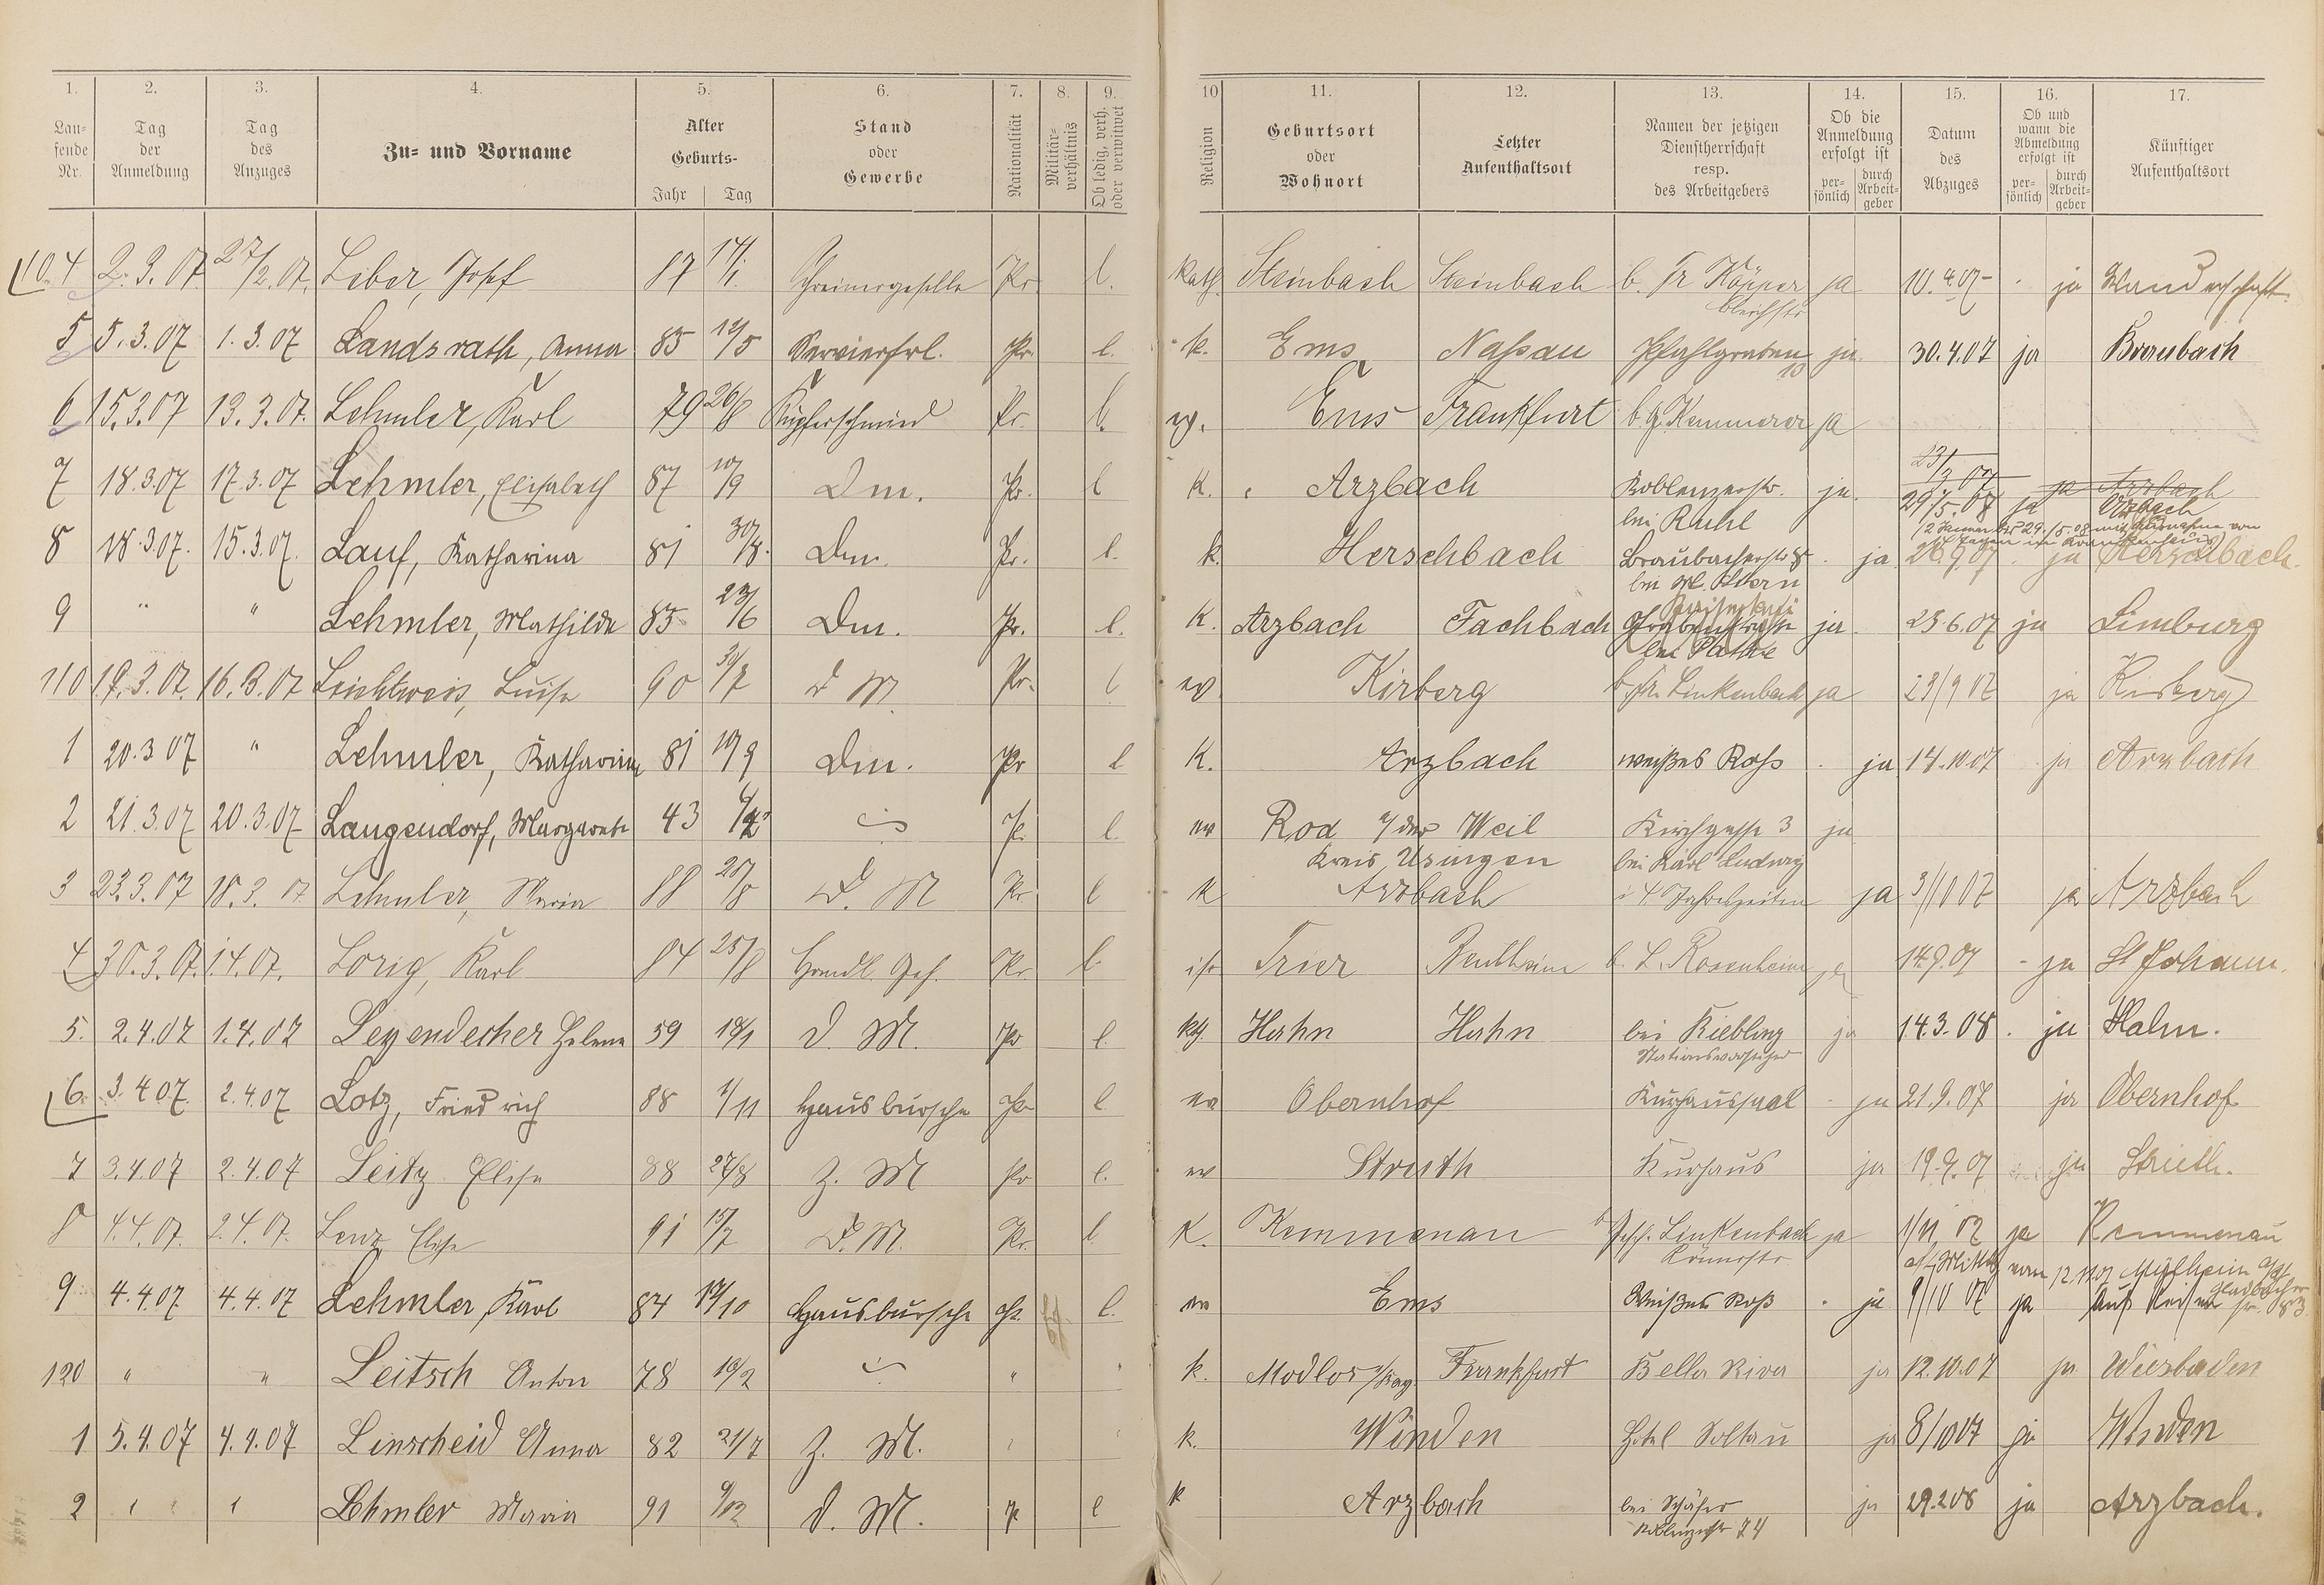 1. 2. 3. 4. 5. 6. 7. 8. 9. 10 11. 12. 13. 14. 15. 16. 17.
Lau-
fende
Nr.
Tag
der
Anmeldung
Tag
des
Anzuges
Zu- und Vorname
Alter
Geburts-
Jahr Tag
Stand
oder
Gewerbe
Nationalität
Militär-
verhältnis
Ob ledig, verh.
oder verwitwet
Religion
Geburtsort
oder
Wohnort
Letzter
Aufenthaltsort
Namen der jetzigen
Dienstherrschaft
resp.
des Arbeitgebers
Ob die
Anmeldung
erfolgt ist
per-
sönlich
durch
Arbeit-
geber
Datum
des
Abzuges
Ob und
wann die
Abmeldung
erfolgt ist
per-
sönlich
durch
Arbeit-
geber
Künftiger
Aufenthaltsort
10.4 2.3.07. 27/2.07. Leber, Josef 87 17/1. Schreinergeselle Pr l. kath. Steinbach Steinbach b. Fr Köpper ja 10.4.07- ja Wanderschaft.
Bleichstr
5 5.3.07 1.3.07 Landsrath, Anna 85 12/5 Servierfrl. Pr. l. k. Ems Nassau Pfahlgraben ja 30.4.07 ja Braubach
13
6 15.3.07 13.3.07. Lehmler, Karl 79 26/8 Kupferschmied Pr. l. ev. Ems Frankfurt b. G. Kemmerer ja
7 18.3.07 17.3.07 Lehmler, Elisabeth 87 10/9 Dm. Pr. l K. Arzbach Koblenzerstr. ja. 23/3 07 ja Arzbach
bei Ruhl 29/5.08 ja Arzbach
8 18.3.07. 15.3.07. Lauf, Katharina 81 30/8. Dm. Pr. l. k. Herschbach Braubacherstr 8 ja 26.9.07 ja Herschbach.
bei M. Stern
9 " " Lehmler, Mathilde 85 23/6 Dm. Pr. l. K. Arzbach Fachbach Grabenstraße ja 25.6.07 ja Limburg
110 19.3.07. 16.3.07 Leichtweis, Luise 90 30/7 D M. Pr. l ev Kirberg b. Fr. Linkenbach ja 23/9 07 ja Kirberg
1 20.3 07 " Lehmler, Katharina 81 10/9 Dm. Pr l K. Arzbach weißes Roß ja 14.10.07 ja Arzbach
2 21.3.07 20.3.07 Langendorf, Margarete 43 Pr. l. ev Rod a/ der Weil Kirchgasse 3 ja
Kreis Usingen bei Karl Ludwig
3 23.3.07 18.3.07 Lehmler, Maria 88 D. M Pr. l K Arzbach i 4 Jahreszeiten ja 3/10 07 ja Arzbach
4 30.3.07. 1.4.07. Lorig, Karl 84 25/8 Handl. Geh. Pr. l. isr Trier Bentheim b. L. Rosenheim ja 14.9.07 - ja St Johann.
5. 2.4.07 1.4.07 Leyendecker Helene 59 18/1 D. M. Pr l. kth. Hahn Hahn bei Kiebling ja 14.3.08. ja Hahn.
Stationsvorsteher
6. 3.4.07. 2.4.07 Lotz, Friedrich 88 1/11 Hausbursche Pr l. ev Obernhof Kurhaussaal ja 21.9.07 ja Obernhof
7 3.4.07 2.4.07 Leitz Elise 88 27/8 Z. M Pr l. ev Struth Kurhaus ja 19.9.07 ja Strueth.
8 4.4.07. 2.4.07. Lenz Elise 91 15/7 D. M. Pr. l K. Kemmenau Linkenbach ja 1/11 07 ja Kemmenau
Römerstr
9 4.4.07 4.4.07 Lehmler, Karl 84 17/10 Hausbursche Pr. l. ev Ems Weißes Roß ja 9/10 07 ja Auf Reisen
120 " " Leitsch Anton 78 10/2 " " k. Modlos /Bay. Frankfurt Bella Riva ja 12.10.07 ja Wiesbaden
1 5.4.07 4.4.07 Linscheid Anna 82 21/7 Z. M. k. Winden Hotel Soltau ja 8/10 07 ja Winden
2 " " Lehmler Maria 91 9/12 D. M. Pr l k Arzbach bei Schäfer ja 29.2.08 ja Arzbach.
Koblenzerstr 74